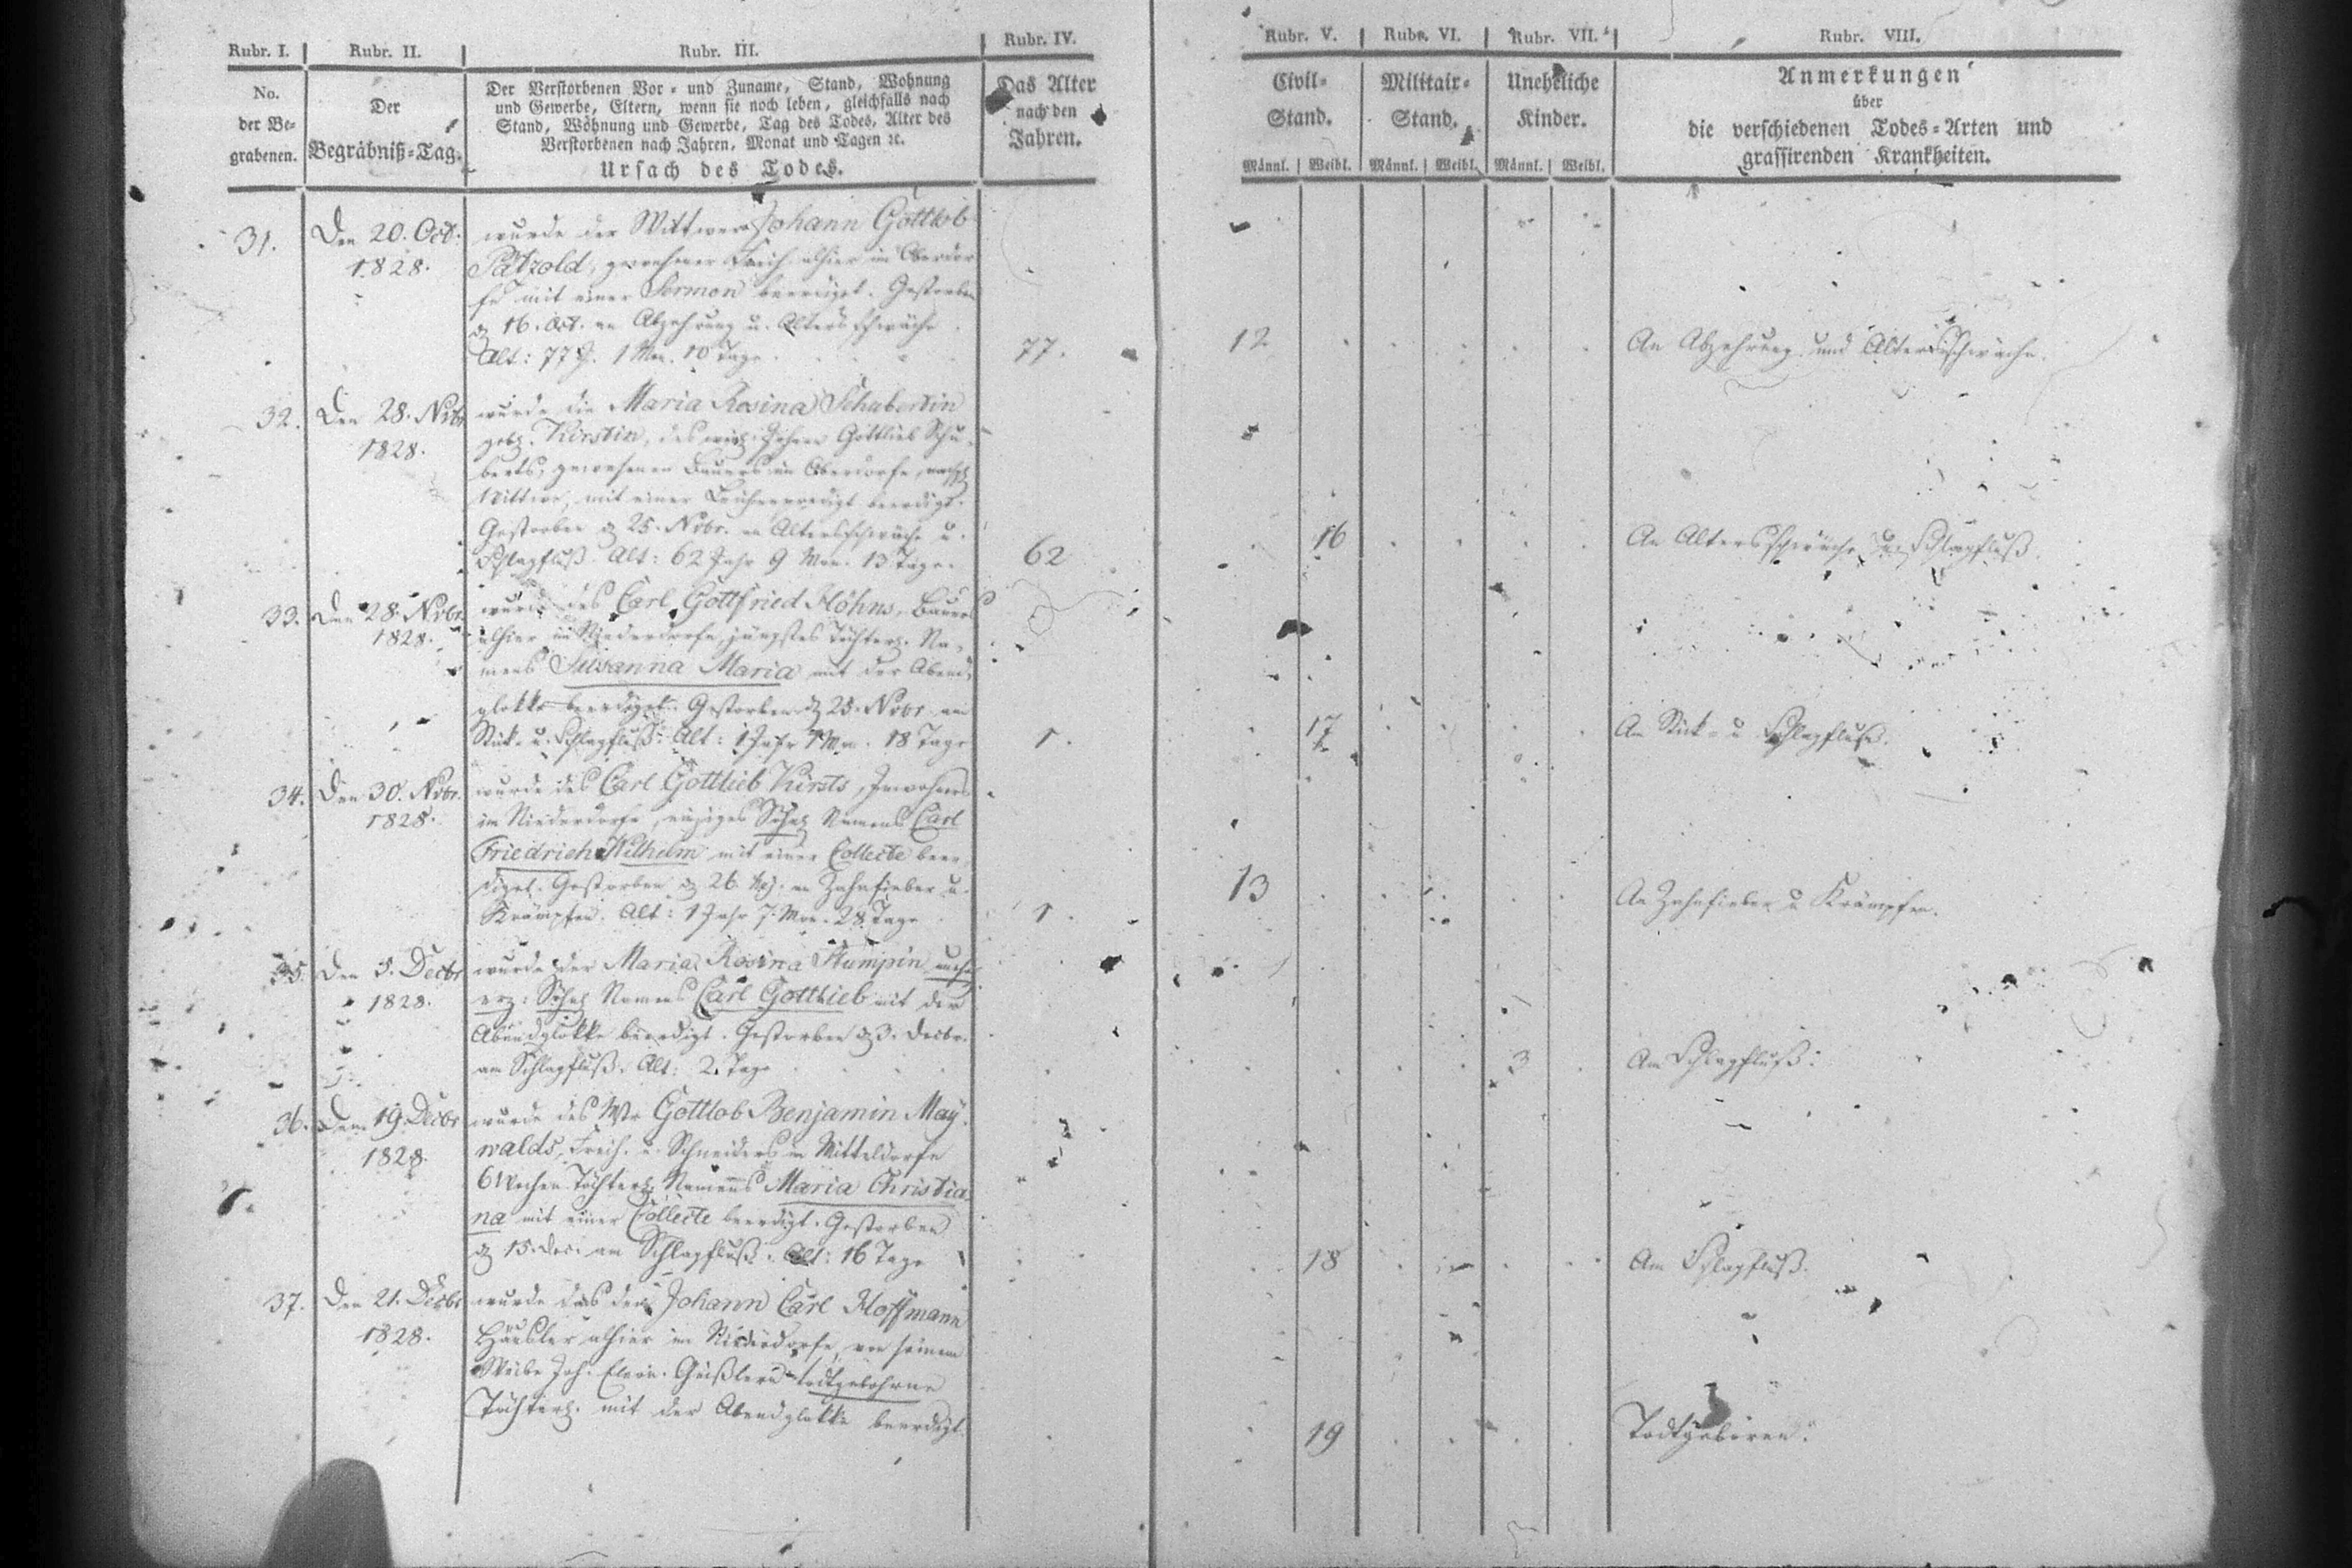 Rubr. I. Rubr. II. Rubr. III. Rubr. IV. Rubr. V. Rubr. VI. Rubr. VII. Rubr. VIII.
No.
der Be-
grabenen.
Der
Begräbniß-Tag.
Der Verstorbenen Vor- und Zuname, Stand, Wohnung
und Gewerbe, Eltern, wenn sie noch leben, gleichfalls nach
Stand, Wohnung und Gewerbe, Tag des Todes, Alter des
Verstorbenen nach Jahren, Monat und Tagen ꝛc.
Ursach des Todes.
Das Alter
nach den
Jahren.
Civil-
Stand.
Männl. Weibl.
Militair-
Stand.
Männl. Weibl.
Uneheliche
Kinder.
Männl. Weibl.
Anmerkungen
über
die verschiedenen Todes-Arten und
grassirenden Krankheiten.
31. Den 20. Oct. 1828.
wurde der Wittwer Johann Gottlob
Pätzold, gewesener Freih. alhier im Oberdor-
fe mit einer Sermon beerdiget. Gestorben
16. Oct. an Abzehrung u. Altersschwäche
Alt: 77 J. 1 Mon. 10 Tage.
77. 12 An Abzehrung und Altersschwäche.
32. Den 28. Nvbr 1828.
wurde die Maria Rosina Schubertin
geb. Kirstin, des Gottlieb Schu-
berts, gewesenen Bauers im Oberdorfe,
Wittwe, mit einer Leichenpredigt beerdigt.
Gestorben 25. Nvbr. an Altersschwäche u.
Schlagfluß. Alt: 62 Jahr 9 Mon. 13 Tage.
62 16 An Altersschwäche Schlagfluß.
33. Den 28. Nvbr. 1828.
wurde des Carl Gottfried Höhns, Bauers
alhier im Niederdorfe, jüngstes Töchterl. Na-
mens Susanna Maria mit der Abend-
glokke beerdiget. Gestorben 25. Nvbr. am
Stick- u. Schlagfluß. Alt: 1 Jahr Mon. 18 Tage
1. 17 An Stick- u Schlagfluß.
34. Den 30. Nvbr. 1828.
wurde des Carl Gottlieb Kirsts, Inwohners
im Niederdorfe, einziges Söhnl Namens Carl
Friedrich Wilhelm mit einer Collecte beer-
diget. Gestorben 26. an Zahnfieber u.
Krämpfen. Alt: 1 Jahr 7 Mon. 28 Tage
1. 13 An Zahnfieber u Krämpfen.
35. Den 5. Decbr 1828.
wurde der Maria Rosina
Söhnl Namens Carl Gottlieb mit der
Abendglokke beerdigt. Gestorben 3. Decbr.
am Schlagfluß. Alt: 2 Tage
3 Am Schlagfluß.
36. Den 19. Decbr 1828.
wurde des Gottlob Benjamin May-
walds, Freih. u. Schneiders in Mitteldorfe
6 Wochen Töchterl. Namens Maria Christia-
na mit einer Collecte beerdigt. Gestorben
15. Dec. am Schlagfluß. Alt: 16 Tage
18 Am Schlagfluß.
37. Den 21. Decbr 1828.
wurde das dem Johann Carl Hoffmann
Häusler alhier im Niederdorfe, von seinem
Weibe Joh. todtgebohrne
Töchterl. mit der Abendglokke beerdigt.
19 Todtgeboren.